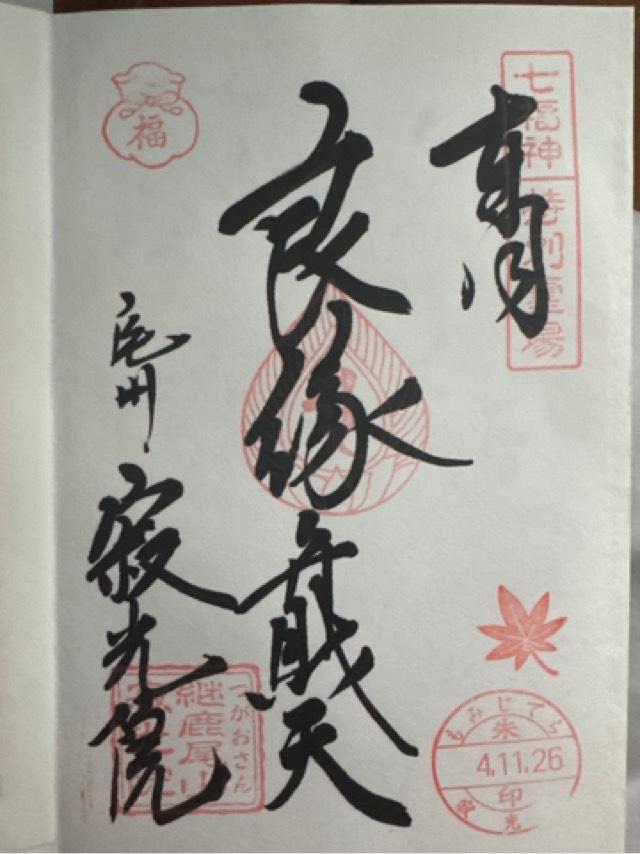 七福神 特別霊場
奉拝
良縁
弁財天
尾州
寂光院
福
つがおさん
継鹿尾山
寂光院
もみじでら
朱
4.11.26
印
寂光